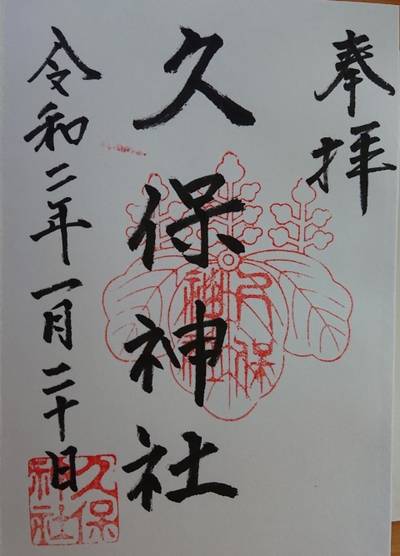 奉拝
久保神社
令和二年一月二十日
久保
神社
久保
神社